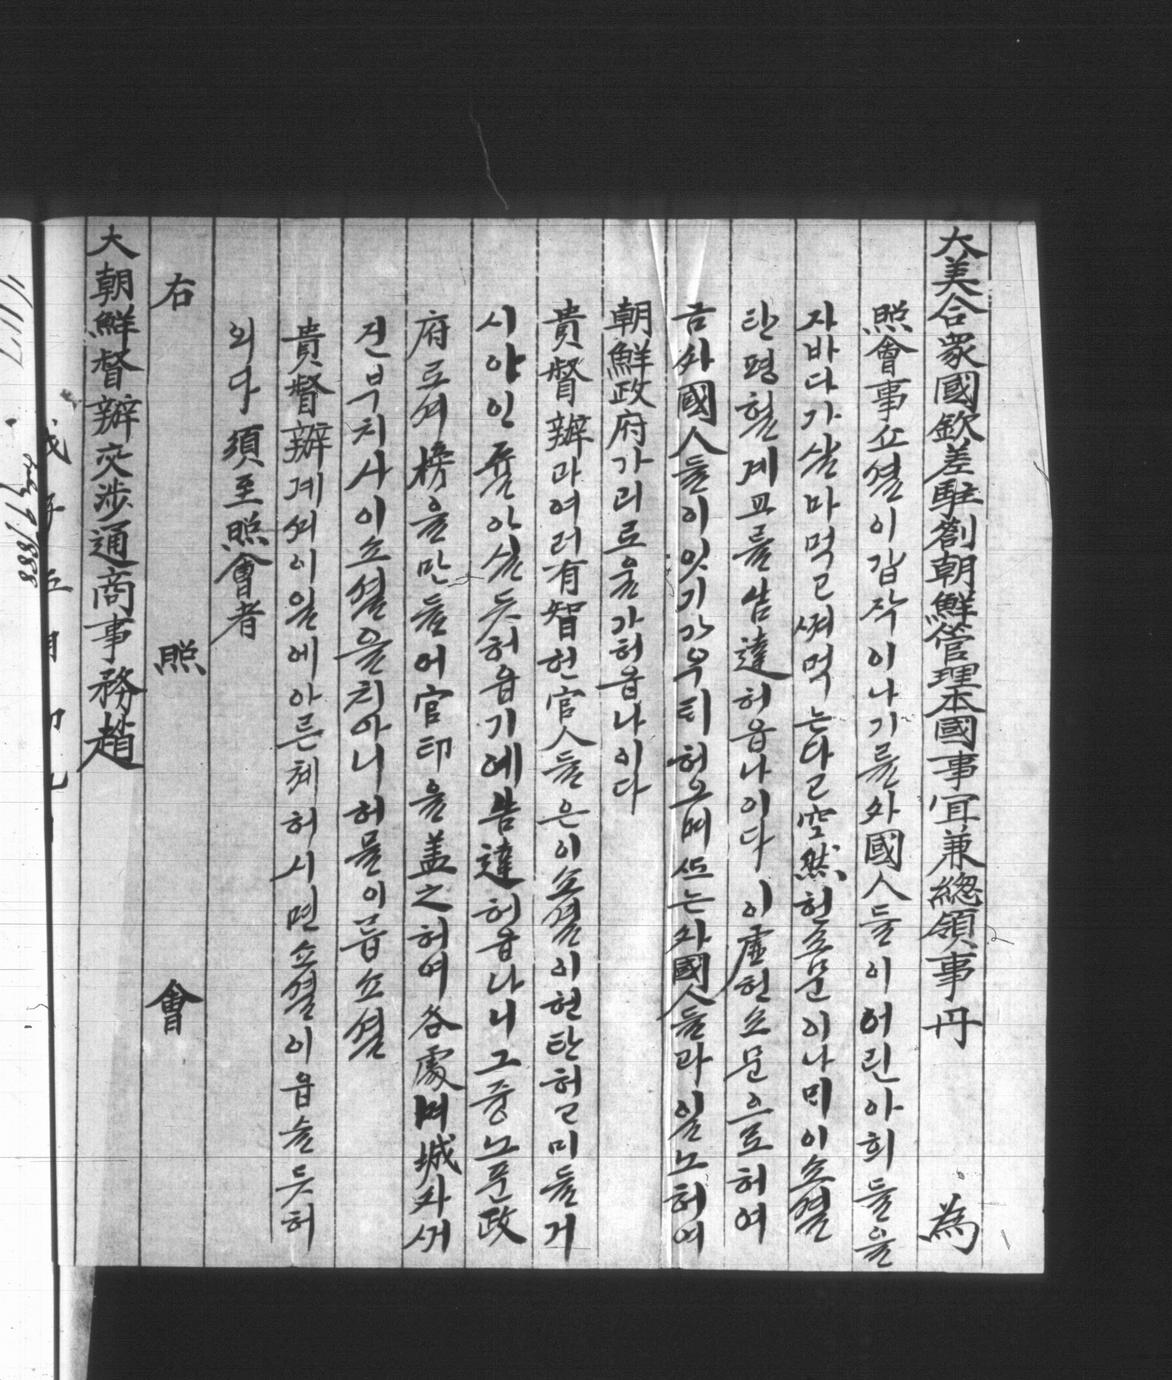 大美合衆國欽差駐劄朝鮮管理本國事宜兼總領事丹 為
照會事쇼셜이갑작이나기를外國人들이어린아희들을
자바다가살마먹고쪄먹는다고空然헌소문이나미이쇼셜
탄평헐계교를仰達허옵나이다이虛헌쇼문으로허여
금外國人들이잇기가우티허오며또는外國人들과일노허여
朝鮮政府가괴로올가허옵나이다
貴督辦과여러有智헌官人들은이쇼셜이헌탄허고미들거
시야인쥴아실듯허옵기에仰達허옵나니그즁노푼政
府로셔榜을만들어官印을盖之허여各處며城와셔
건부치사이쇼셜을치아니허물이름쇼셜
貴督辦계셔이일에아른쳬허시면쇼셜이읍슬듯허
외다須至照會者
右 照 會
大朝鮮督辦交涉通商事務趙
戊子五月初九